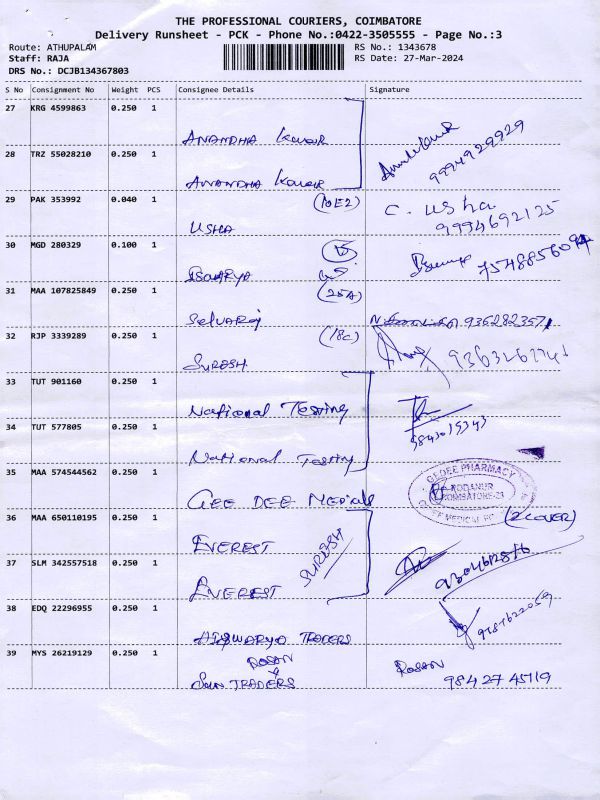 THE PROFESSIONAL COURIERS, COIMBATORE
Delivery Runsheet - PCK - Phone No.:0422-3505555 - Page No.:3
Route: ATHUPALAM
Staff: RAJA
DRS No.: DCJB134367803
RS No.: 1343678
RS Date: 27-Mar-2024
S No Consignment No Weight PCS Consignee Details Signature
27 KRG 4599863 0.250 1
ANANDHA Kumar
28 TRZ 55028210 0.250 1
ANANDHA Kumar
9994929929
29 PAK 353992 0.040 1 (10E2)
USHA C. usha
9994692125
30 MGD 280329 0.100 1
ISWARYA 7548856094
31 MAA 107825849 0.250 1 (25A)
Selvaraj 9362823571
32 RJP 3339289 0.250 1 (18C)
SURESH
33 TUT 901160 0.250 1
National Testing
34 TUT 577805 0.250 1
National Testing
9843015343
35 MAA 574544562 0.250 1
GEE DEE Medicals
GEDEE PHARMACY
KODANUR
COIMBATORE-23
(2 COVER)
36 MAA 650110195 0.250 1
EVEREST
SURESH
37 SLM 342557518 0.250 1
EVEREST
38 EDQ 22296955 0.250 1
AISWARYA TRADERS
39 MYS 26219129 0.250 1
ROSAN
Sun TRADERS
ROSAN
98427 45119